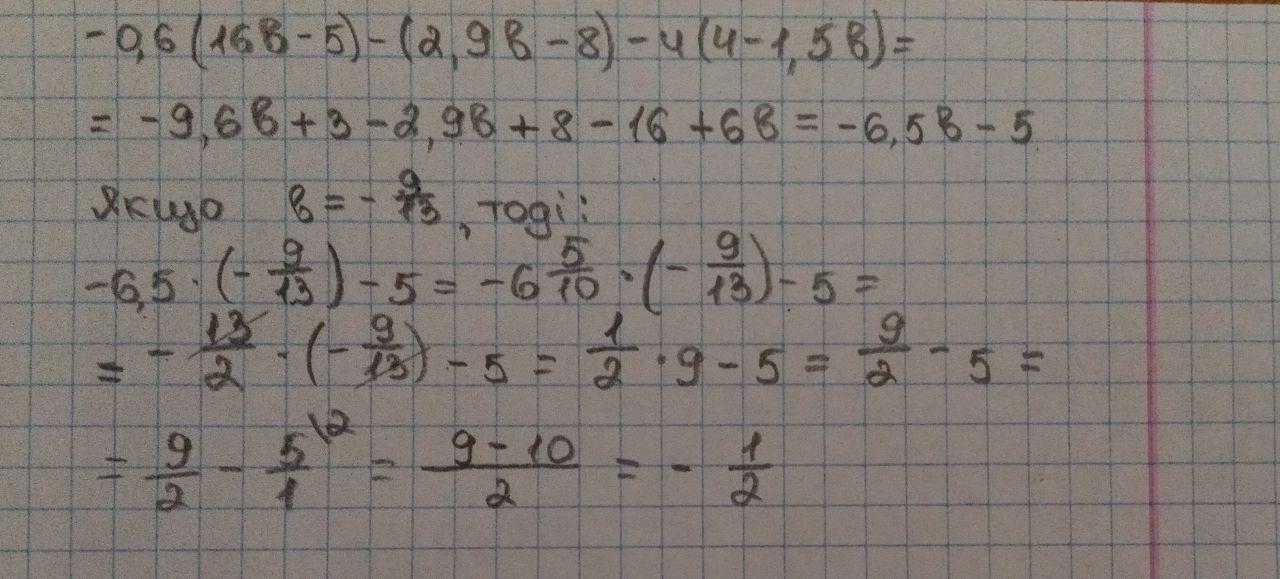 -0,6(16в-5)-(2,9в-8)-4(4-1,5в)=
= -9,6в+3-2,9в+8-16+6в=-6,5в-5
Якщо в=-9/13, тоді:
-6,5·(-9/13)-5=-6 5/10·(-9/13)-5=
=-13/2·(-9/13)-5=1/2·9-5=9/2-5=
=9/2-5/1\2=9-10/2=-1/2